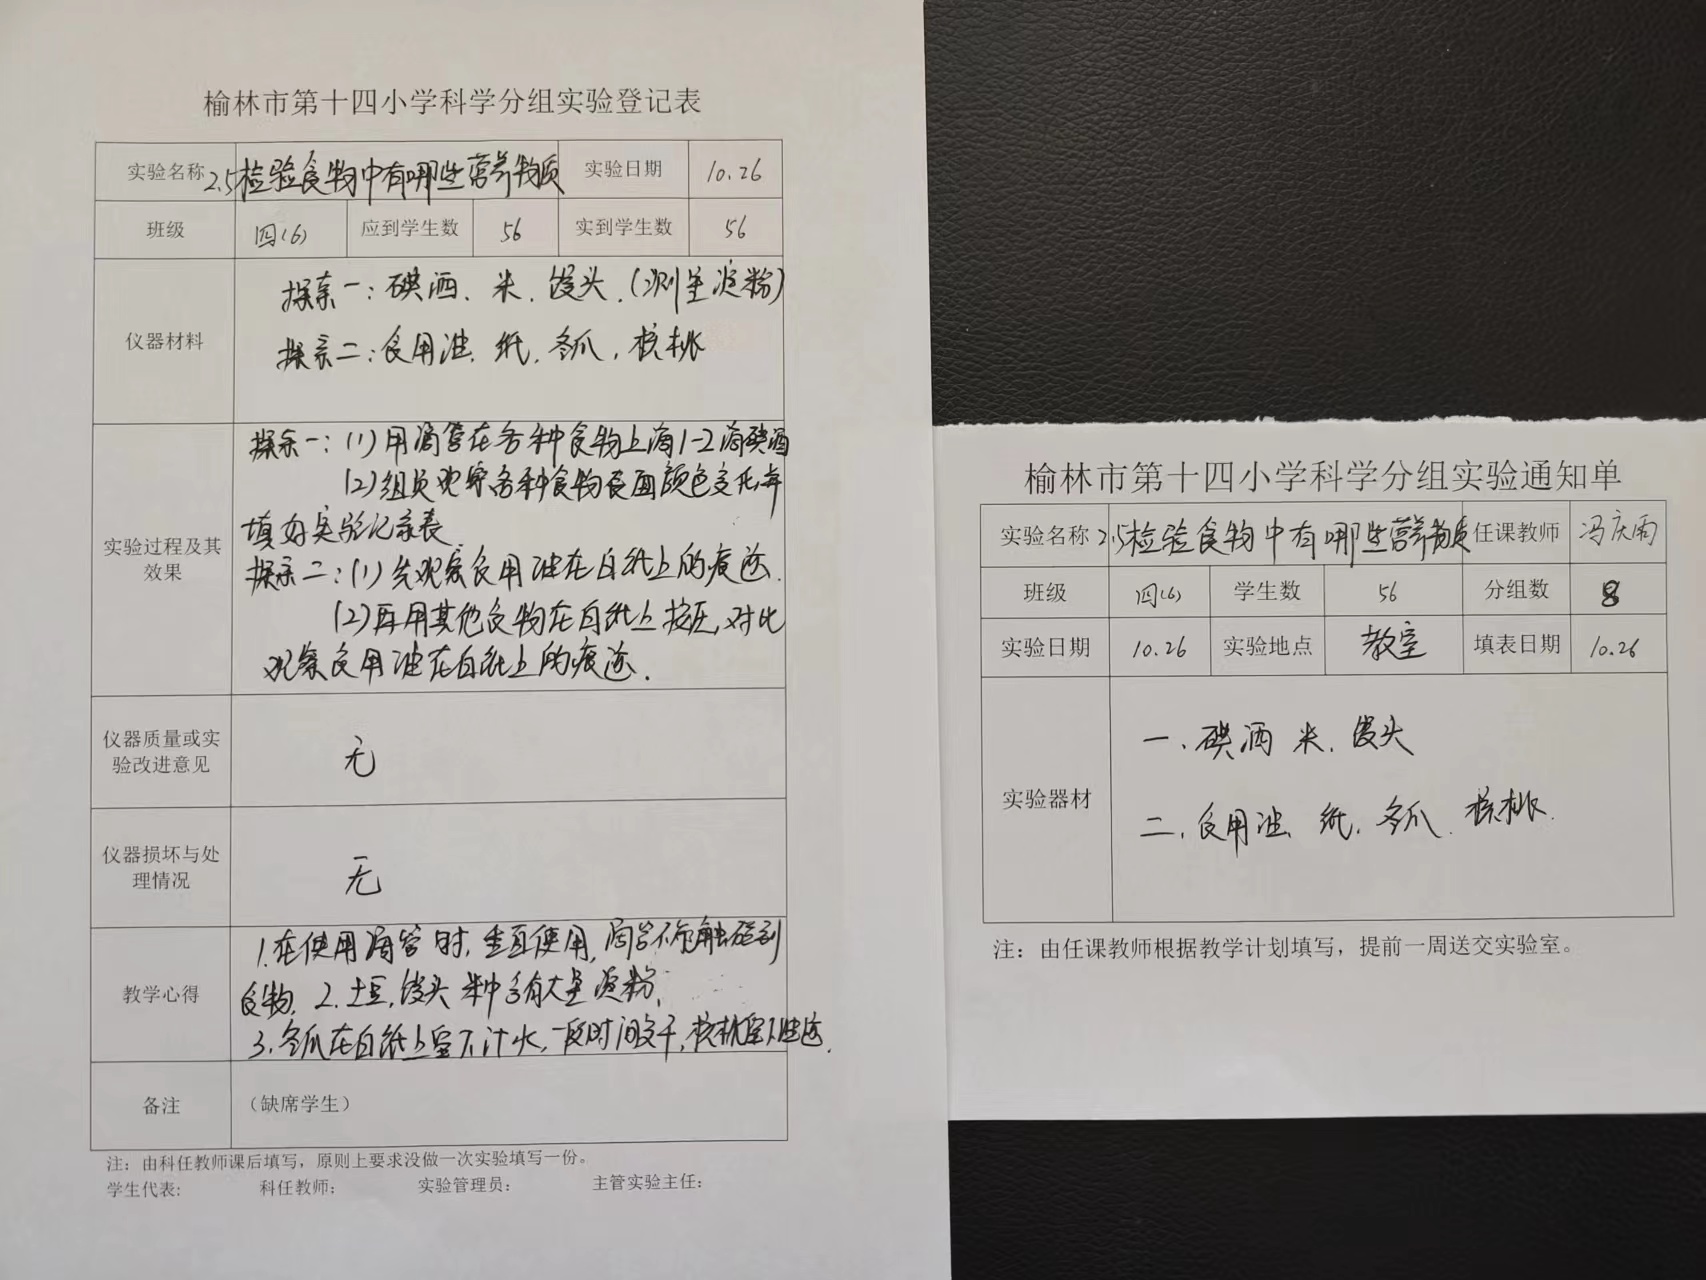 榆林市第十四小学科学分组实验登记表
实验名称 2.5检验食物中有哪些营养物质 实验日期 10.26
班级 四(6) 应到学生数 56 实到学生数 56
仪器材料
探索一:碘酒、米、馒头、(测量淀粉)
探索二:食用油、纸、冬瓜、核桃
实验过程及其
效果
探索一:(1)用滴管在各种食物上滴1-2滴碘酒
(2)组员观察各种食物表面颜色变化,并
填好实验记录表.
探索二:(1)先观察食用油在白纸上的痕迹.
(2)再用其他食物在白纸上按压,对比
观察食用油在白纸上的痕迹.
仪器质量或实
验改进意见
无
仪器损坏与处
理情况
无
教学心得
1.在使用滴管时,垂直使用,滴管不能触碰到
食物. 2.土豆,馒头 米中含有大量淀粉.
3.冬瓜在白纸上留下汁水,一段时间变干,核桃留下油迹.
备注 (缺席学生)
注：由科任教师课后填写，原则上要求没做一次实验填写一份。
学生代表: 科任教师; 实验管理员: 主管实验主任:
榆林市第十四小学科学分组实验通知单
实验名称 2.5检验食物中有哪些营养物质 任课教师 冯庆雨
班级 四(6) 学生数 56 分组数 8
实验日期 10.26 实验地点 教室 填表日期 10.26
实验器材
一、碘酒 米、馒头
二、食用油、纸、冬瓜、核桃.
注：由任课教师根据教学计划填写，提前一周送交实验室。